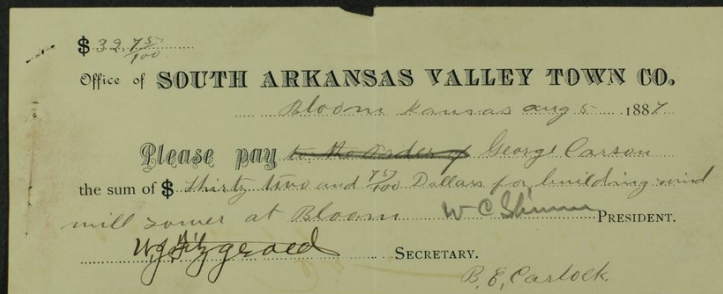 $ 32.75/100
Office of SOUTH ARKANSAS VALLEY TOWN CO.
Bloom Kansas Aug 5 1887
Please pay to the order of George Carson
the sum of $ thirty two and 75/100 Dollars for building wind
mill tower at Bloom W C Shinn PRESIDENT.
W J Fitzgerald SECRETARY.
B. E. Carlock.